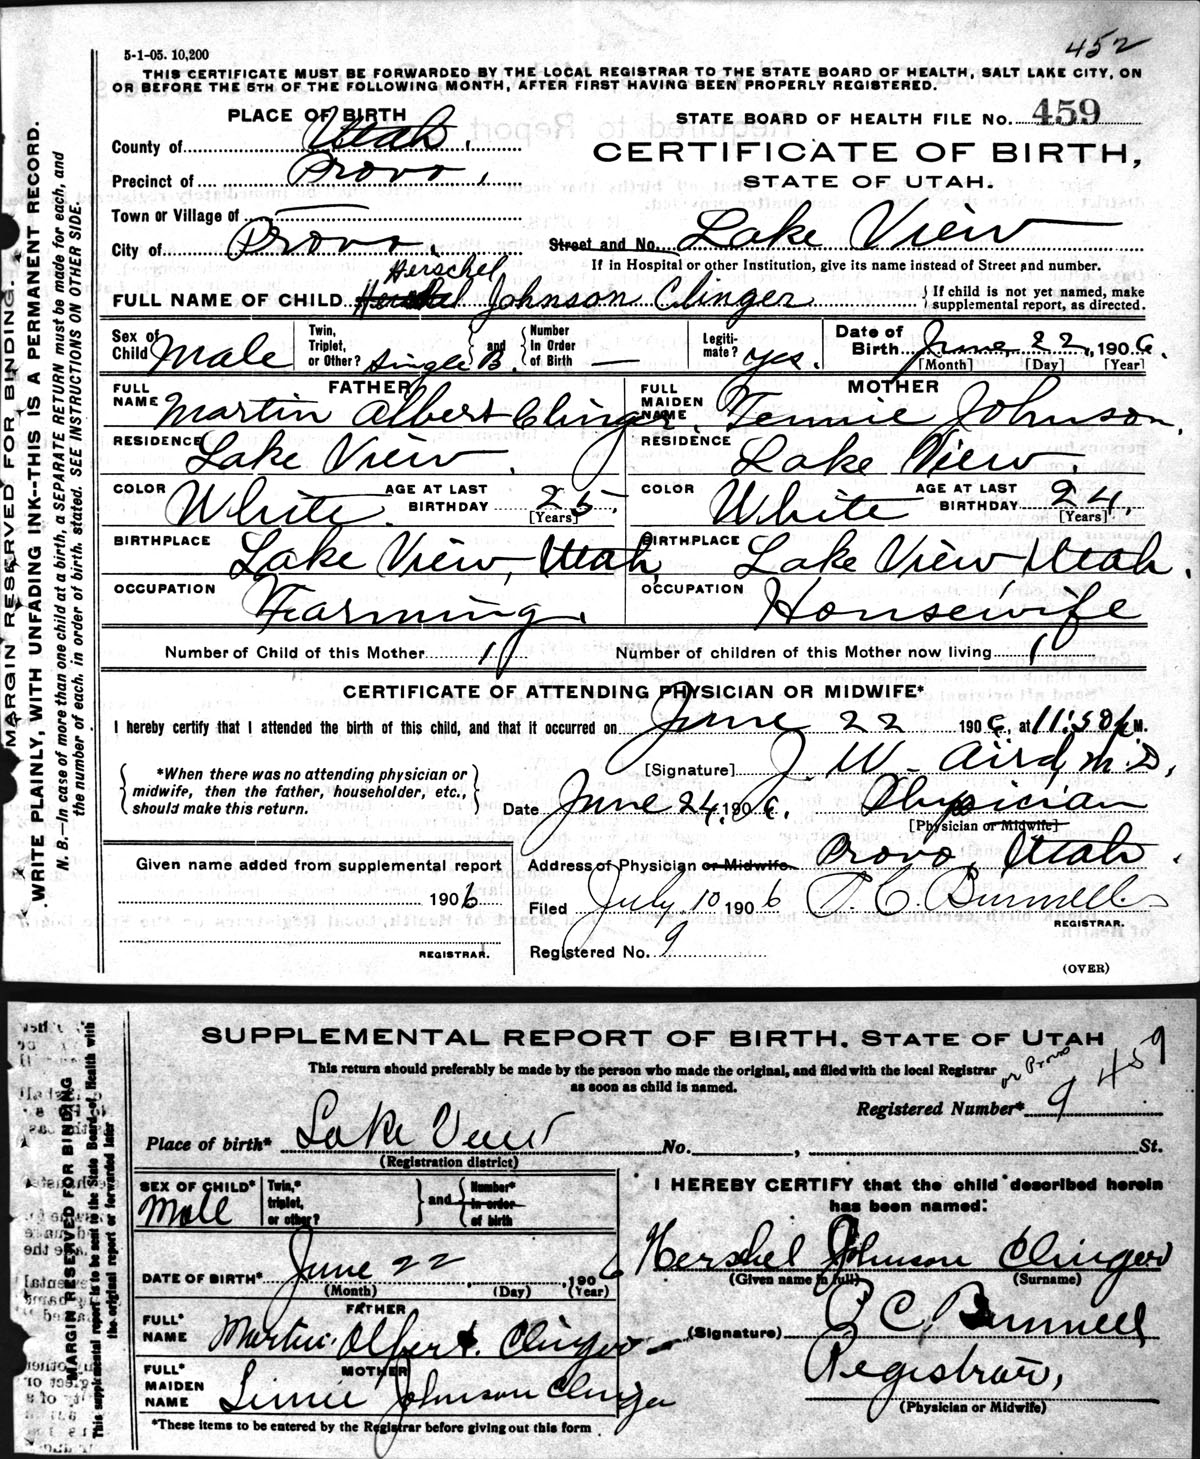 452
5-1-05. 10,200
THIS CERTIFICATE MUST BE FORWARDED BY THE LOCAL REGISTRAR TO THE STATE BOARD OF HEALTH, SALT LAKE CITY, ON
OR BEFORE THE 5TH OF THE FOLLOWING MONTH, AFTER FIRST HAVING BEEN PROPERLY REGISTERED.
PLACE OF BIRTH
STATE BOARD OF HEALTH FILE No. 459
County of Utah,
CERTIFICATE OF BIRTH,
Precinct of Provo,
STATE OF UTAH.
Town or Village of
City of Provo.
Street and No. Lake View
If in Hospital or other Institution, give its name instead of Street and number.
Herschel
FULL NAME OF CHILD Johnson Clinger
If child is not yet named, make
supplemental report, as directed.
Sex of Child Male
Twin, Triplet, or Other? Single B. and Number In Order of Birth —
Legitimate? yes.
Date of Birth June 22, 1906.
[Month] [Day] [Year]
FATHER
FULL NAME Martin Albert Clinger.
MOTHER
FULL MAIDEN NAME Tennie Johnson.
RESIDENCE Lake View.
RESIDENCE Lake View.
COLOR White. AGE AT LAST BIRTHDAY 25. [Years]
COLOR White AGE AT LAST BIRTHDAY 24. [Years]
BIRTHPLACE Lake View, Utah,
BIRTHPLACE Lake View Utah.
OCCUPATION Farming.
OCCUPATION Housewife
Number of Child of this Mother 1
Number of children of this Mother now living 1
CERTIFICATE OF ATTENDING PHYSICIAN OR MIDWIFE*
I hereby certify that I attended the birth of this child, and that it occurred on June 22 1906, at 11:50 M.
*When there was no attending physician or
midwife, then the father, householder, etc.,
should make this return.
[Signature] J. W. Aird, M.D.,
Date June 24, 1906. Physician
[Physician or Midwife]
Given name added from supplemental report
1906
REGISTRAR.
Address of Physician or Midwife Provo, Utah.
Filed July 10 1906 P. C. Bunnell
REGISTRAR.
Registered No. 9
(OVER)
MARGIN RESERVED FOR BINDING.
WRITE PLAINLY, WITH UNFADING INK--THIS IS A PERMANENT RECORD.
N. B.—In case of more than one child at a birth, a SEPARATE RETURN must be made for each, and
the number of each, in order of birth, stated. SEE INSTRUCTIONS ON OTHER SIDE.
SUPPLEMENTAL REPORT OF BIRTH. STATE OF UTAH
This return should preferably be made by the person who made the original, and filed with the local Registrar
as soon as child is named.
or Provo
459
Registered Number* 9
Place of birth* Lake View No. , St.
(Registration district)
SEX OF CHILD* Male
Twin,* triplet, or other? and Number* in order of birth
I HEREBY CERTIFY that the child described herein
has been named:
Hershel Johnson Clinger
(Given name in full) (Surname)
DATE OF BIRTH* June 22, 1906
(Month) (Day) (Year)
FATHER
FULL* NAME Martin Albert Clinger
(Signature) P C Bunnell
MOTHER
FULL* MAIDEN NAME Johnson Clinger
Registrar,
(Physician or Midwife)
*These items to be entered by the Registrar before giving out this form
MARGIN RESERVED FOR BINDING
This supplemental report is to be sent to the State Board of Health with
the original report or forwarded later